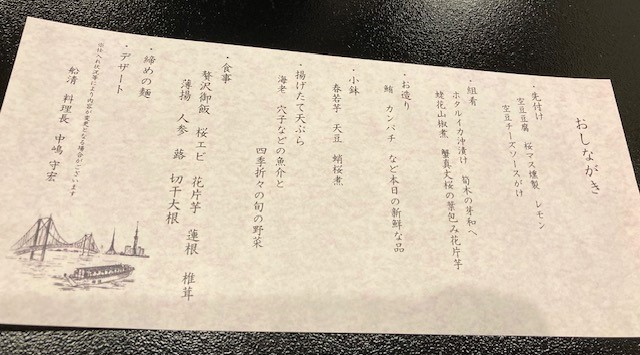 おしながき
・先付け
空豆豆腐 桜マス燻製 レモン
空豆チーズソースがけ
・組肴
ホタルイカ沖漬け 筍木の芽和へ
蛯花山椒煮 蟹真丈桜の葉包み花片芋
・お造り
鮪 カンパチ など本日の新鮮な品
・小鉢
春若芋・天豆 蛸桜煮
・揚げたて天ぷら
海老 穴子などの魚介と
四季折々の旬の野菜
・食事
贅沢御飯 桜エビ 花片芋 蓮根 椎茸
薄揚 人参 蕗 切干大根
・締めの麺
・デザート
※仕入れ状況等により内容が変更となる場合がございます
船清 料理長 中嶋 守宏